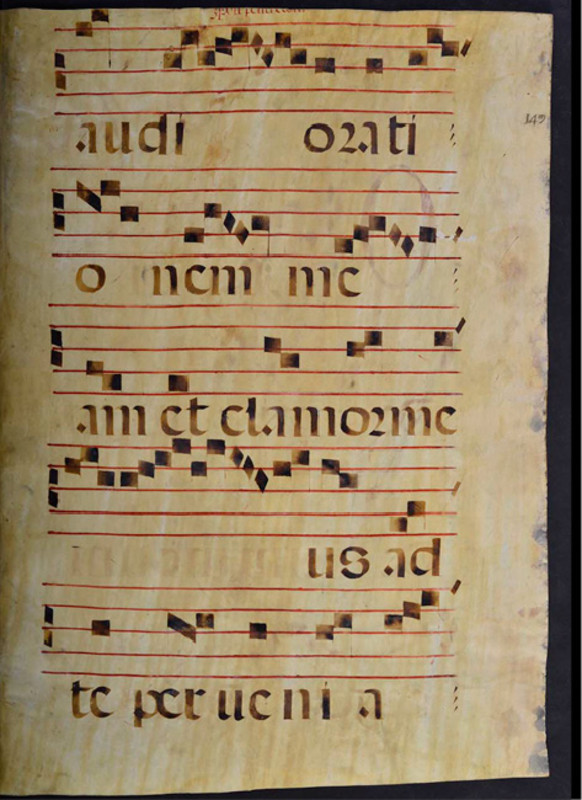 149
audi orati
o nem me
am et clamor me
us ad
te per ue ni a